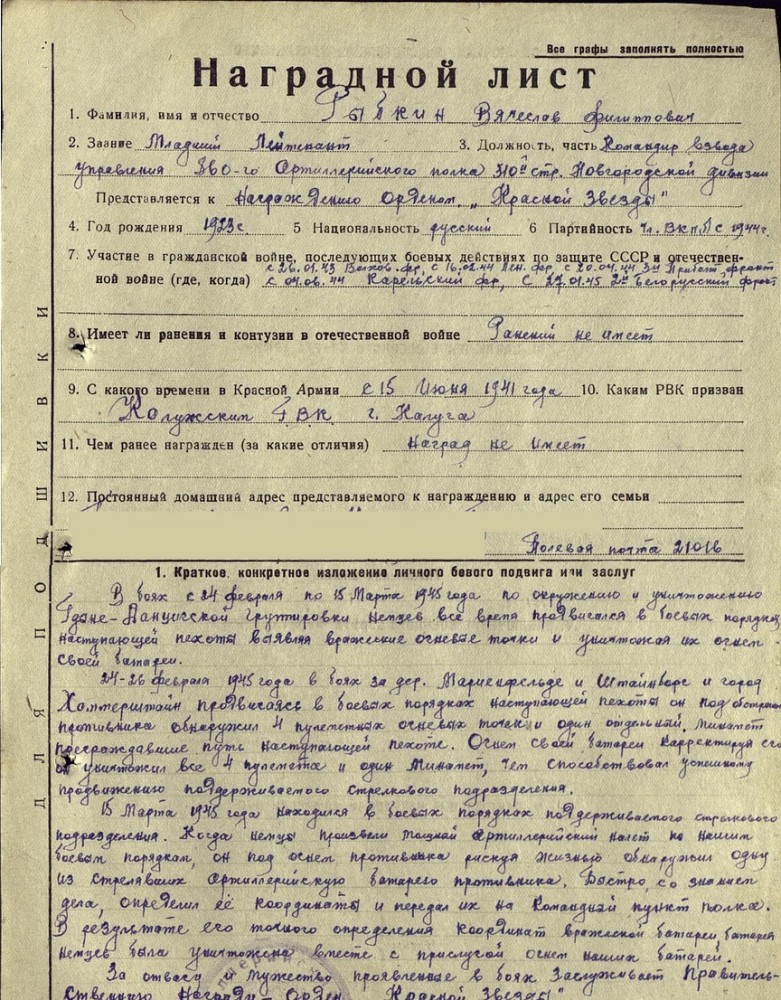 Все графы заполнять полностью
Наградной лист
1. Фамилия, имя и отчество Рыбкин Вячеслав Филиппович
2. Звание Младший Лейтенант 3. Должность, часть Командир взвода
управления 860-го Артиллерийского полка 310й стр. Новгородской дивизии
Представляется к Награждению Орденом „Красной Звезды"
4. Год рождения 1923 г. 5 Национальность русский 6 Партийность Чл. ВКП/б с 1944г.
7. Участие в гражданской войне, последующих боевых действиях по защите СССР и отечествен-
с 26.01.43 Волхов. фр, с 16.02.44 Лен. фр, с 20.04.44 3й Прибалт. фронт
ной войне (где, когда) с 04.06.44 Карельский фр, с 27.01.45 2й Белорусский фронт
8. Имеет ли ранения и контузии в отечественной войне Ранений не имеет
9. С какого времени в Красной Армии с 15 Июня 1941 года 10. Каким РВК призван
Калужским ГВК г. Калуга
11. Чем ранее награжден (за какие отличия) наград не имеет
12. Постоянный домашний адрес представляемого к награждению и адрес его семьи
Полевая почта 21016
1. Краткое, конкретное изложение личного боевого подвига или заслуг
В боях с 24 февраля по 15 Марта 1945 года по окружению и уничтожению
Гдане-Данцигской группировки немцев все время продвигался в боевых порядках
наступающей пехоты выявляя вражеские огневые точки и уничтожая их огнем
своей батареи.
24-26 февраля 1945 года в боях за дер. Мариенфельде и Штайнборс и город
Хаммерштайн продвигаясь в боевых порядках наступающей пехоты он под обстрелом
противника обнаружил 4 пулеметных огневых точки и один отдельный миномет
преграждавшие путь наступающей пехоте. Огнем своей батареи корректируя его
он уничтожил все 4 пулемета и один Миномет, чем способствовал успешному
продвижению поддерживаемого стрелкового подразделения.
15 Марта 1945 года находился в боевых порядках поддерживаемого стрелкового
подразделения. Когда немцы произвели мощный артиллерийский налет по нашим
боевым порядкам, он под огнем противника рискуя жизнью обнаружил одну
из стрелявших артиллерийскую батарею противника. Быстро, со знанием
дела, определил её координаты и передал их на Командный пункт полка.
В результате его точного определения координат вражеской батареи, батарея
немцев была уничтожена вместе с прислугой огнем наших батарей.
За отвагу и мужество проявленные в боях Заслуживает Правитель-
ственной Награды – Орден „Красной Звезды"
ДЛЯ ПОДШИВКИ